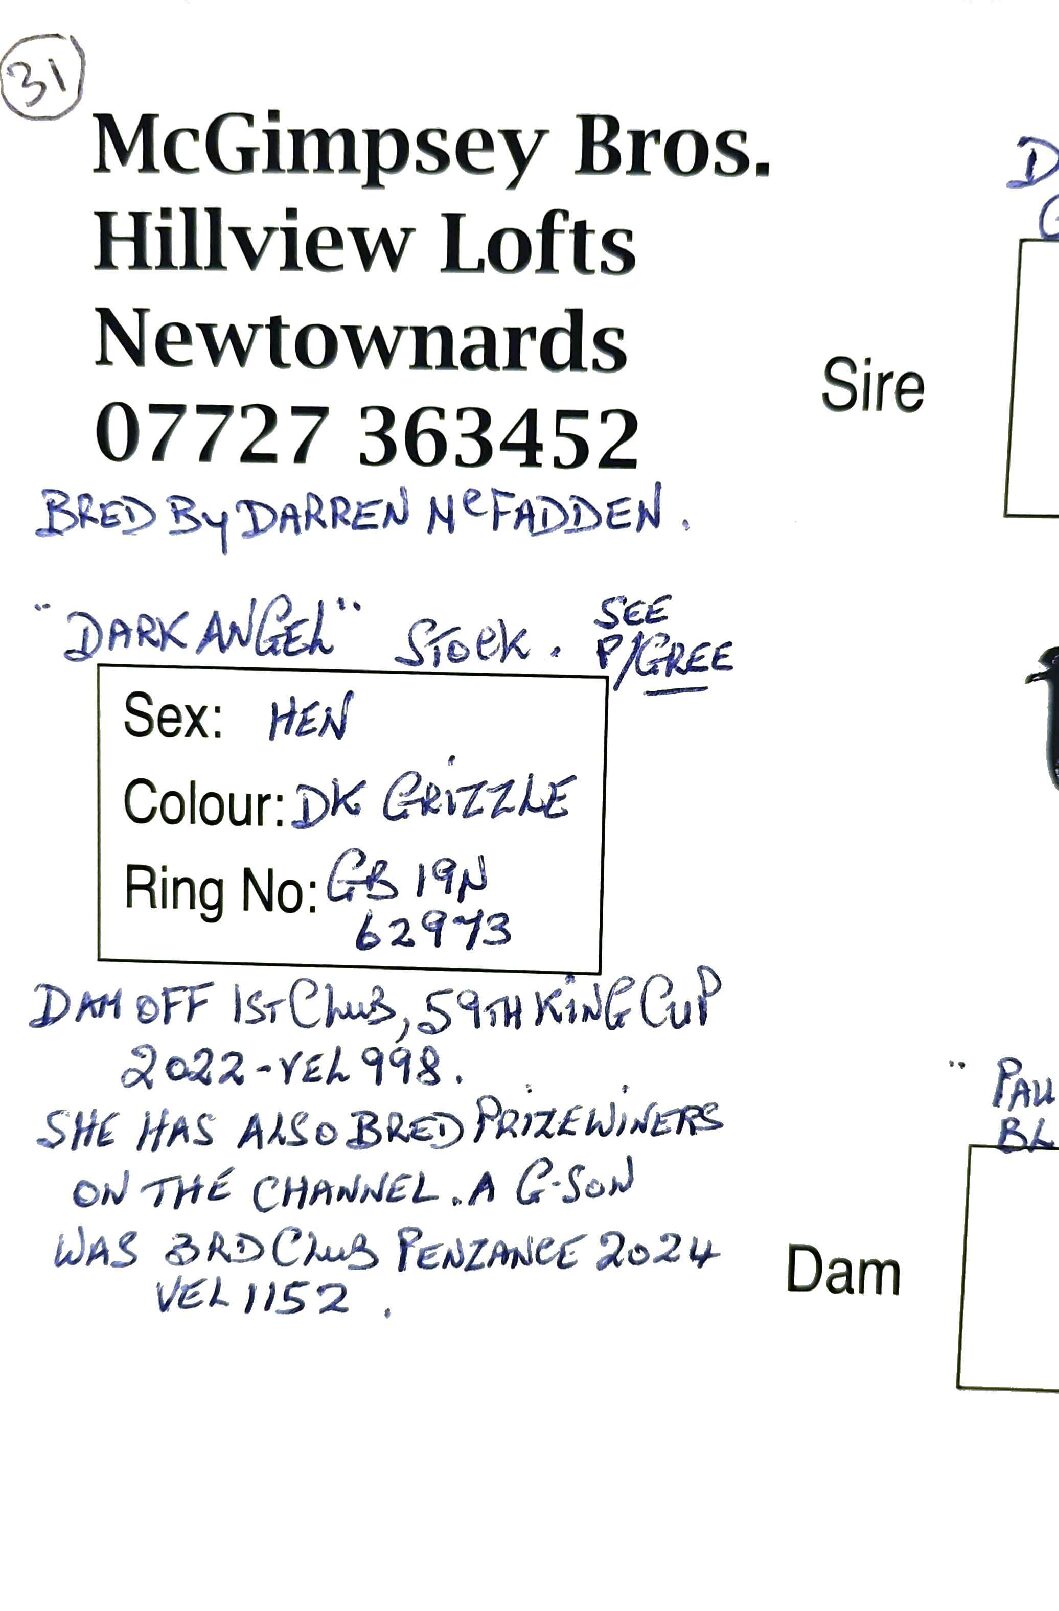 31
McGimpsey Bros.
Hillview Lofts
Newtownards
07727 363452
BRED BY DARREN McFADDEN.
"DARK ANGEL" STOCK. SEE
P/GREE
Sex: HEN
Colour: DK GRIZZLE
Ring No: GB 19N
62973
DAM OFF 1ST CLUB, 59TH KING CUP
2022-VEL 998.
SHE HAS ALSO BRED PRIZEWINERS
ON THE CHANNEL. A G-SON
WAS 3RD CLUB PENZANCE 2024
VEL 1152.
D
G
Sire
" PAU
BL
Dam